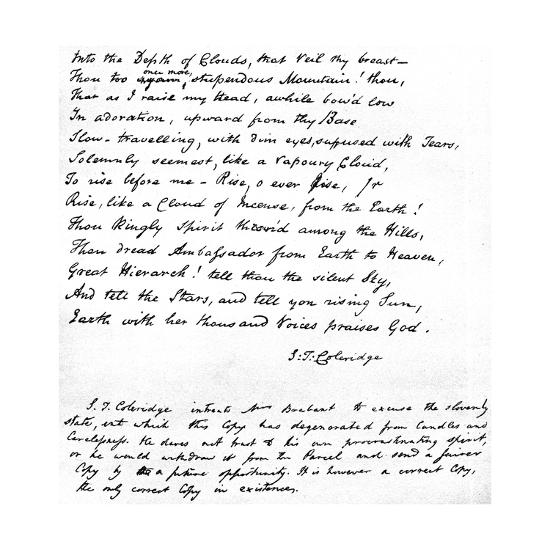 Into the Depth of Clouds, that veil thy breast—
Thou too once more, stupendous Mountain! thou,
That as I raise my head, awhile bow'd low
In adoration, upward from thy Base
Slow-travelling, with dim eyes, suffused with Tears,
Solemnly seemest, like a vapoury Cloud,
To rise before me—Rise, o ever Rise,
Rise, like a Cloud of Incense, from the Earth!
Thou kingly Spirit thron'd among the Hills,
Thou dread Ambassador from Earth to Heaven,
Great Hierarch! tell thou the silent Sky,
And tell the Stars, and tell yon rising Sun,
Earth with her thousand Voices praises God.
S.T. Coleridge
S. T. Coleridge intreats Mrs Brabant to excuse the slovenly
state, into which this Copy has degenerated from Candles and
Carelessness. He dares not trust to his own procrastinating spirit,
or he would withdraw it from the Parcel and send a fairer
Copy by a future opportunity. It is however a correct Copy,
the only correct Copy in existence.